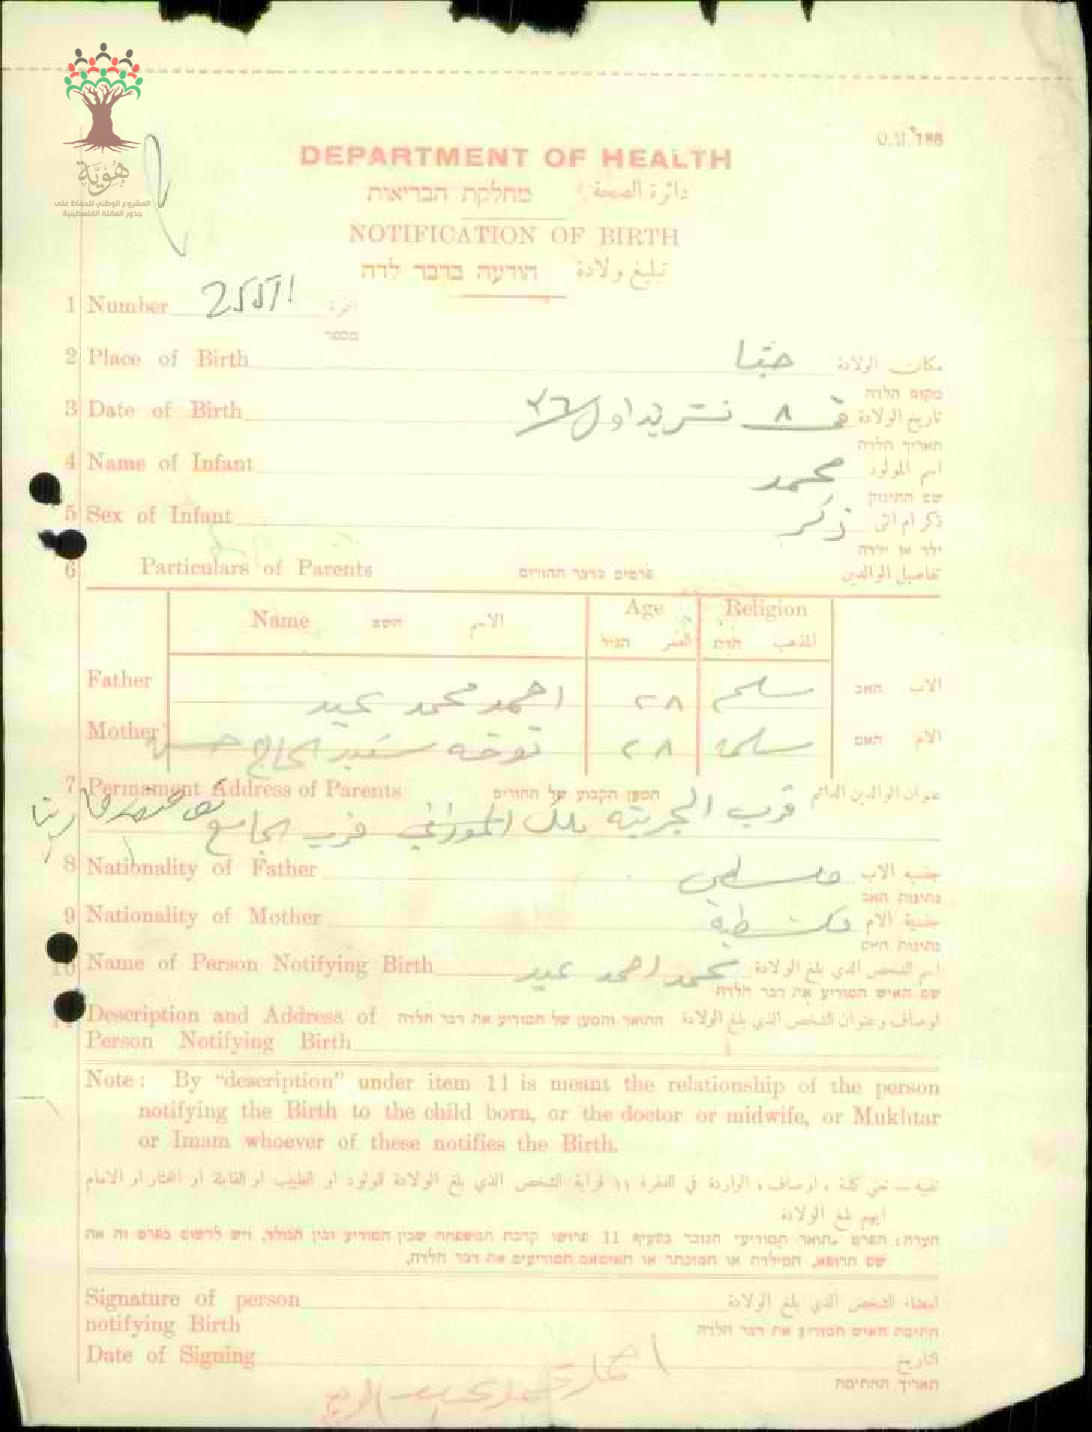 هُوِيَّة
المشروع الوطني للحفاظ على
جذور العائلة الفلسطينية
DEPARTMENT OF HEALTH
דائرة الصحة מחלקת הבריאות
NOTIFICATION OF BIRTH
تبليغ ولادة הודעה בדבר לדה
1 Number
מספר
2 Place of Birth حيفا مكان الولادة
מקום הלדה
3 Date of Birth ٨ تشرين اول تاريخ الولادة
תאריך הלדה
4 Name of Infant محمد اسم المولود
שם התינוק
5 Sex of Infant ذكر ذكر ام انثى
ילד או ילדה
6 Particulars of Parents פרטים בדבר ההורים تفاصيل الوالدين
Name השם الاسم Age Religion
העمر הגיל المذهب הדת
Father احمد محمد عيد ٢٨ مسلم الاب האב
Mother سعيد الحاج حسن ٢٨ مسلمة الام האם
7 Permament Address of Parents המען הקבוע של ההורים عنوان الوالدين الدائم
قرب ملك قرب الجامع
8 Nationality of Father فلسطيني جنسية الاب
נתינות האב
9 Nationality of Mother فلسطينية جنسية الام
נתינות האם
10 Name of Person Notifying Birth محمد احمد عيد اسم الشخص الذي بلغ الولادة
שם האיש המודיע את דבר הלדה
11 Description and Address of התואר והמען של המודיע את דבר הלדה اوصاف وعنوان الشخص الذي بلغ الولادة
Person Notifying Birth
Note: By “description” under item 11 is meant the relationship of the person
notifying the Birth to the child born, or the doctor or midwife, or Mukhtar
or Imam whoever of these notifies the Birth.
تنبيه — نعني كلمة ، اوصاف ، الواردة في الفقرة ١١ قرابة الشخص الذي بلغ الولادة للولود او الطبيب او القابلة او المختار او الامام
ايهم بلغ الولادة
הערה: הפרט „תואר המודיע” הנזכר בסעיף 11 פרושו קרבת המשפחה שבין המודיע ובין הנולד, ויש לרשום בפרט זה את
שם הרופא, המילדת או המוכתר או האימאם המודיעים את דבר הלדה.
Signature of person امضاء الشخص الذي بلغ الولادة
notifying Birth חתימת האיש המודיע את דבר הלדה
Date of Signing التاريخ
תאריך החתימה